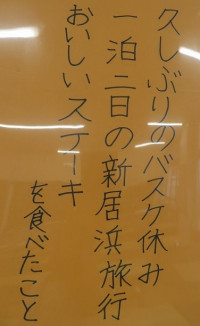 久しぶりのバスケ休み
一泊二日の新居浜旅行
おいしいステーキ
を食べたこと